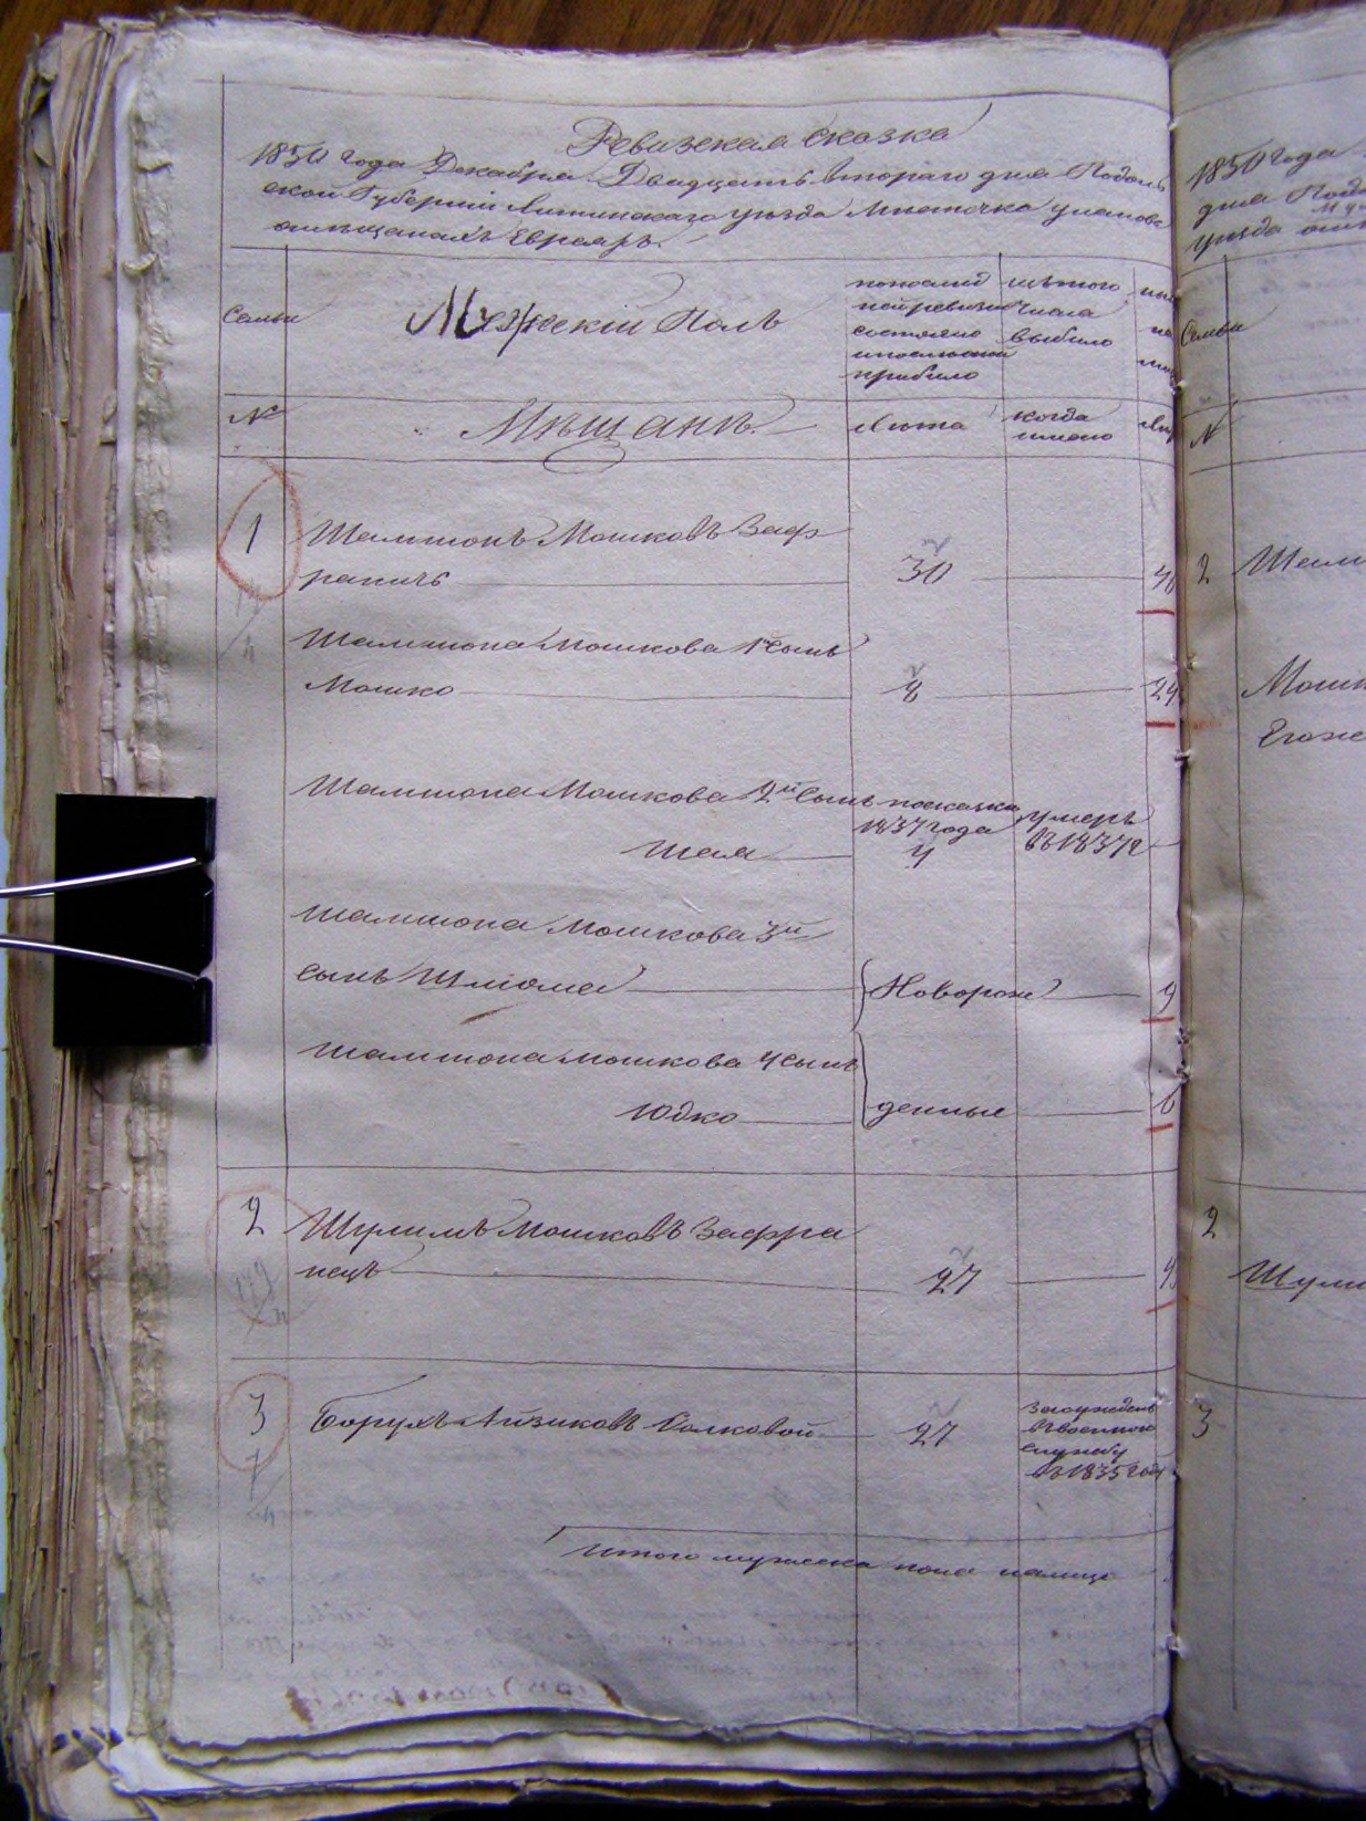 Ревизская сказка
1850 года Декабря Двадцать втораго дня Подоль
ской Губернии Литинскаго уезда Местечка Уланова
о мещанахъ Евреяхъ.
Семьи
Мужескій Полъ
по послед
ней ревизии
состояло
и после оной
прибыло
изъ того
числа
выбыло
№
Мещане.
Лета
когда
именно
1
Шамшонъ Мошковъ Заф
ранецъ
30
Шамшона Мошкова 1й сынъ
Мошко
8
24
Шамшона Мошкова 2й сынъ
по сказке
1837 года
умеръ
въ 1837г
Шая
4
Шамшона Мошкова 3й
сынъ Шлиома
Новорож
9
Шамшона Мошкова 4 сынъ
Юдко
денные
6
2
Шулимъ Мошковъ Зафра
нецъ
27
3
Борухъ Айзиковъ Волковой
27
въ военную
службу
въ 1835 году
Итого мужеска пола налицо
1850 года
дня Подо
уезда
Семьи
№
2
Шам
Мошк
Его же
2
Шули
3